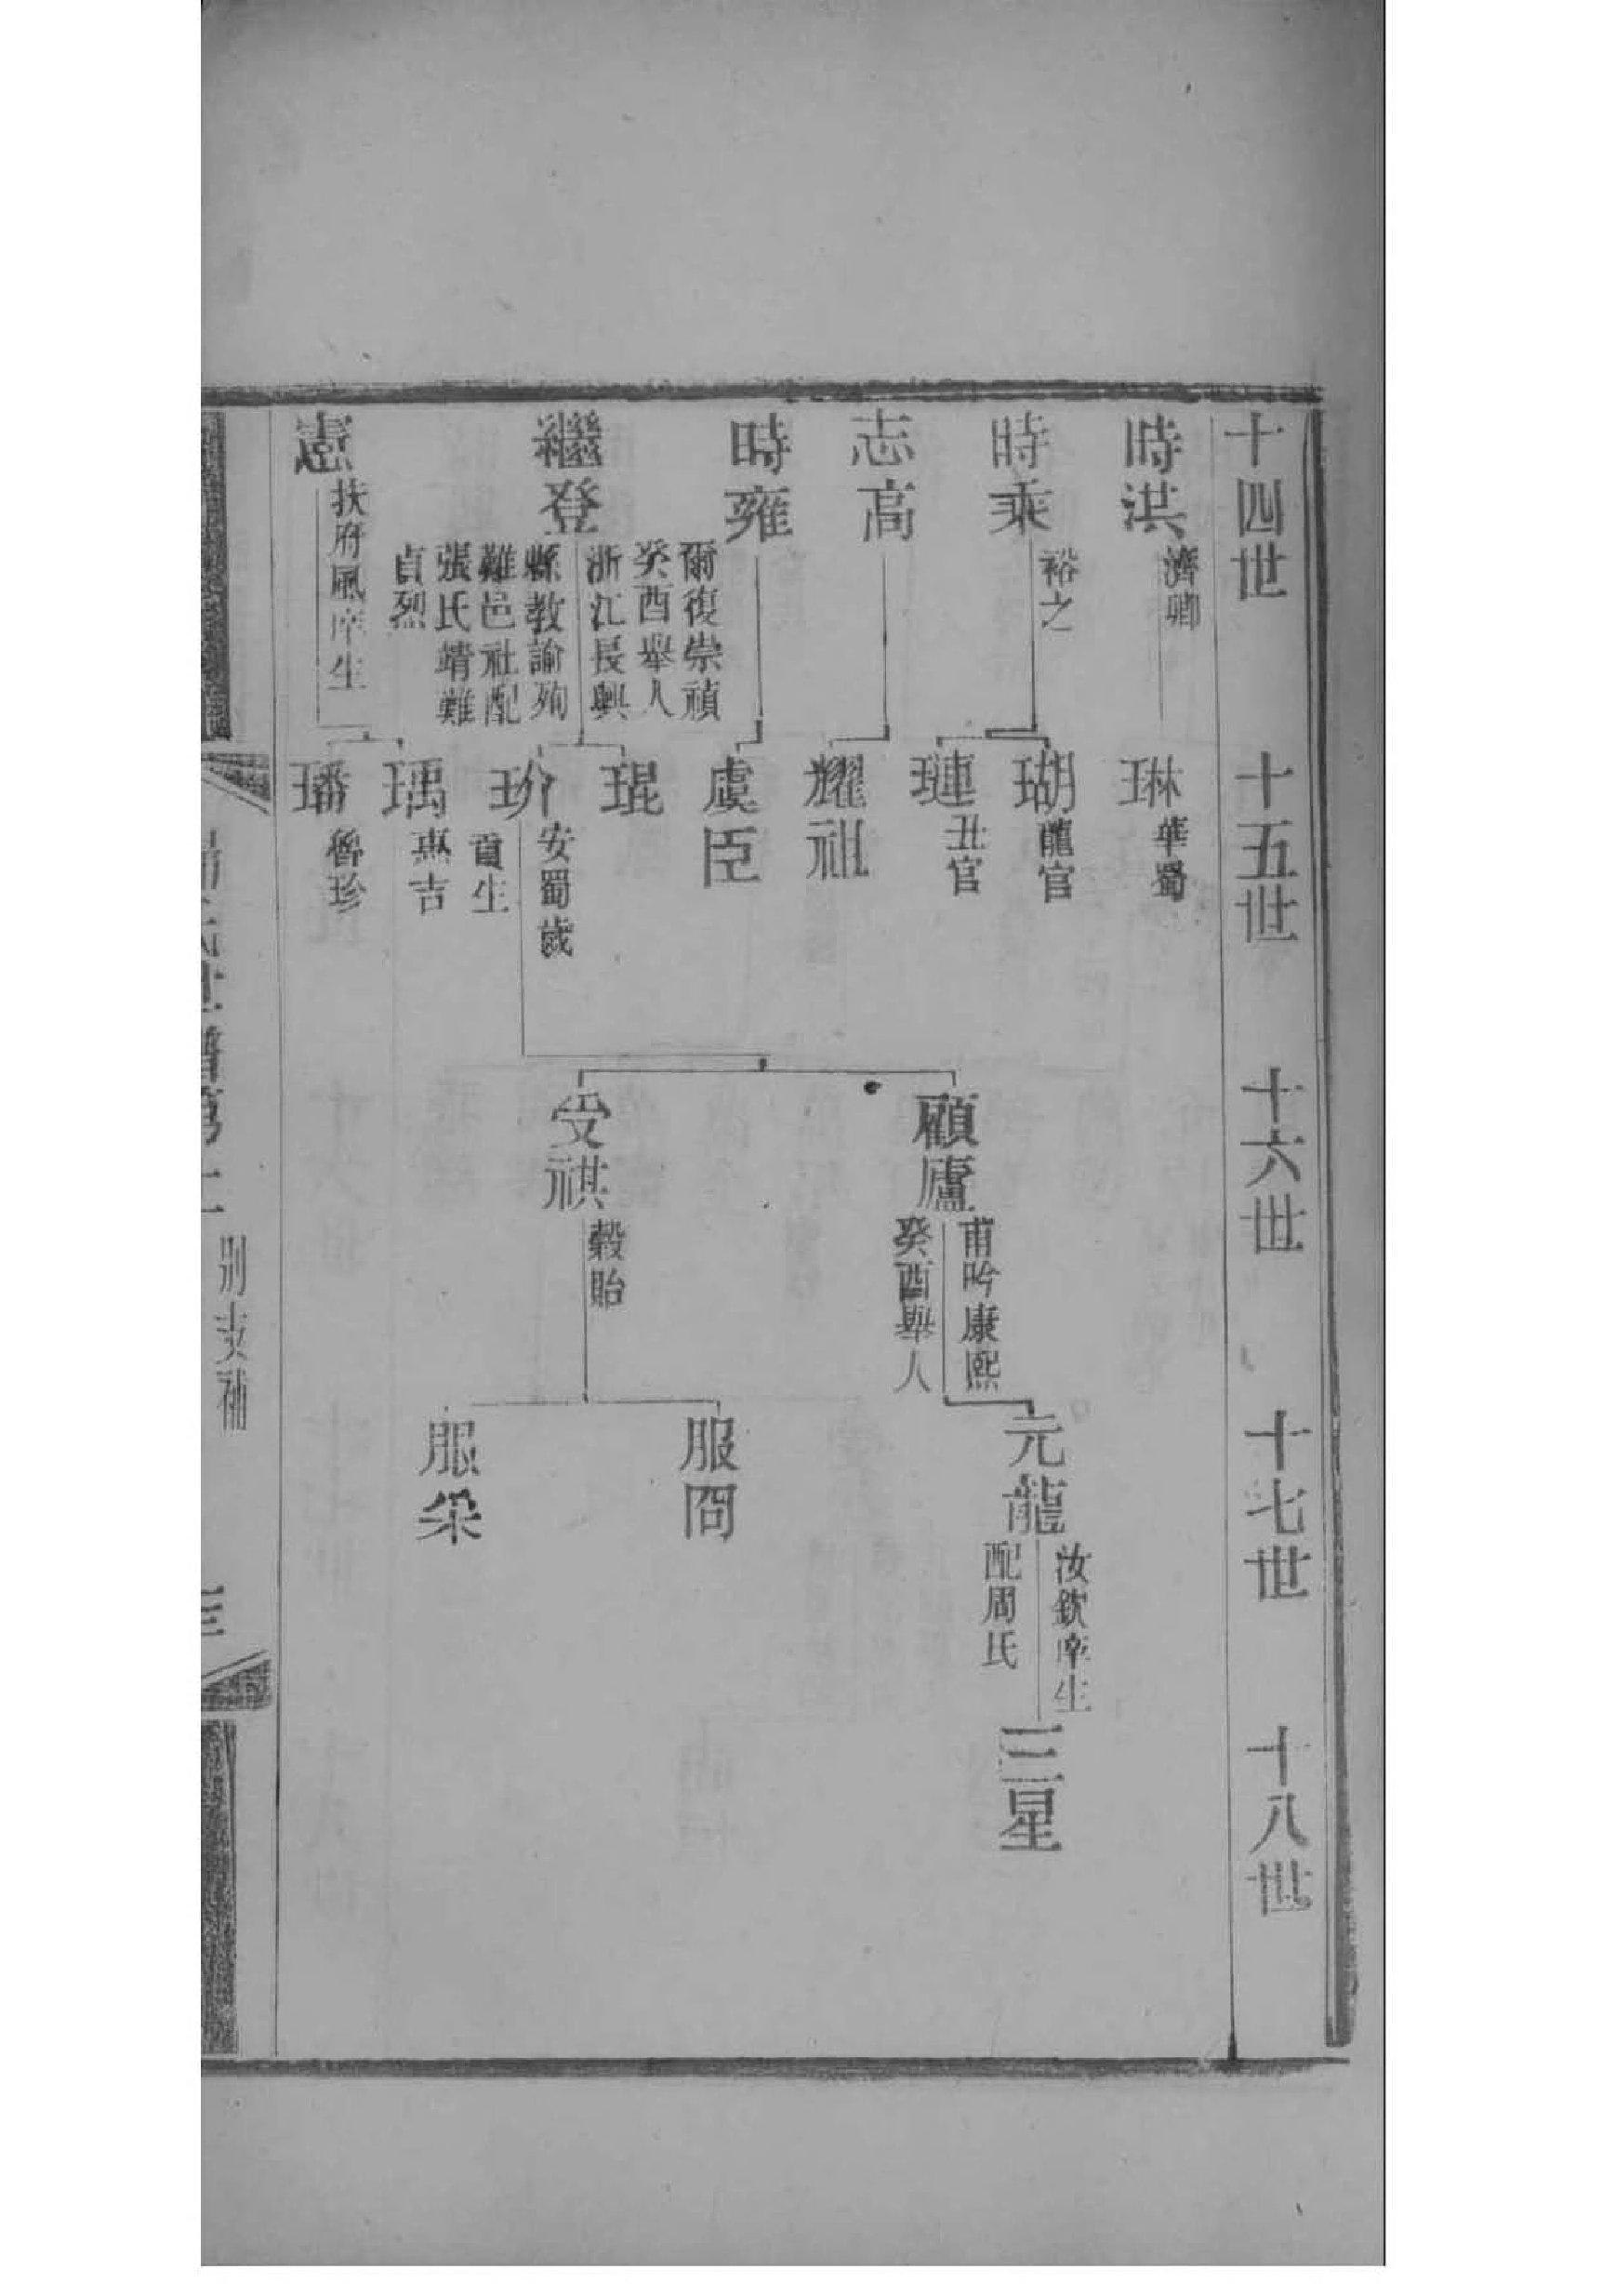 十四世
十五世
十六世
十七世
十八世
時洪
濟卿
時乘
裕之
志高
時雍
繼登
爾復崇禎
癸酉舉人
浙江長興
縣教諭殉
難邑社配
張氏靖難
貞烈
憲
扶府風庠生
琳
華蜀
瑚
龍官
璉
丑官
耀祖
虞臣
琨
玠
安蜀歲
貢生
瑀
惠吉
璠
魯珍
顧廬
甫吟康熙
癸酉舉人
受祺
穀貽
元龍
汝欽庠生
配周氏
服冏
服采
三星
氏世譜第
別支補
三